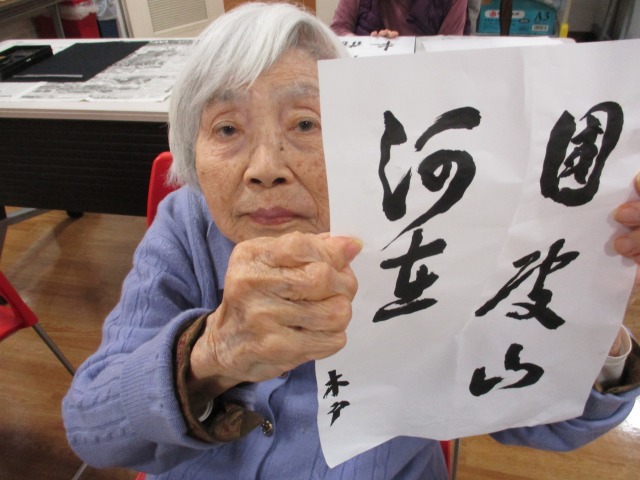 国破山
河在
木戸
A3